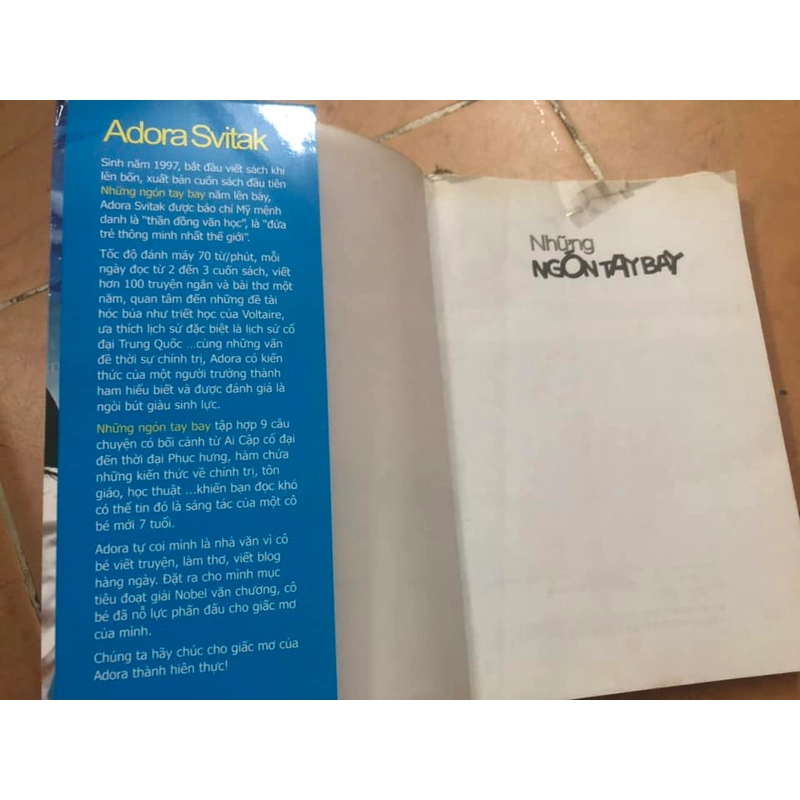 Adora Svitak
Sinh năm 1997, bắt đầu viết sách khi
lên bốn, xuất bản cuốn sách đầu tiên
Những ngón tay bay năm lên bảy,
Adora Svitak được báo chí Mỹ mệnh
danh là “thần đồng văn học”, là “đứa
trẻ thông minh nhất thế giới”.
Tốc độ đánh máy 70 từ/phút, mỗi
ngày đọc từ 2 đến 3 cuốn sách, viết
hơn 100 truyện ngắn và bài thơ một
năm, quan tâm đến những đề tài
hóc búa như triết học của Voltaire,
ưa thích lịch sử đặc biệt là lịch sử cổ
đại Trung Quốc ...cùng những vấn
đề thời sự chính trị, Adora có kiến
thức của một người trưởng thành
ham hiểu biết và được đánh giá là
ngòi bút giàu sinh lực.
Những ngón tay bay tập hợp 9 câu
chuyện có bối cảnh từ Ai Cập cổ đại
đến thời đại Phục hưng, hàm chứa
những kiến thức về chính trị, tôn
giáo, học thuật ...khiến bạn đọc khó
có thể tin đó là sáng tác của một cô
bé mới 7 tuổi.
Adora tự coi mình là nhà văn vì cô
bé viết truyện, làm thơ, viết blog
hàng ngày. Đặt ra cho mình mục
tiêu đoạt giải Nobel văn chương, cô
bé đã nỗ lực phấn đấu cho giấc mơ
của mình.
Chúng ta hãy chúc cho giấc mơ của
Adora thành hiện thực!
Những
NGÓN TAY BAY